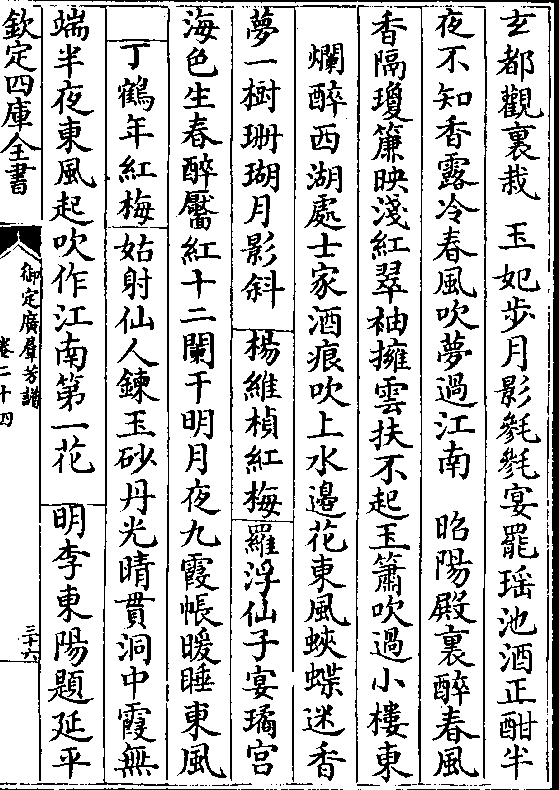 玄都觀裏栽　玉妃步月影毿毿宴罷瑶池酒正酣半
夜不知香露冷春風吹夢過江南　昭陽殿裏醉春風
香隔瓊簾映淺紅翠袖擁雲扶不起玉簫吹過小樓東
爛醉西湖處士家酒痕吹上水邉花東風蛺蝶迷香
夢一樹珊瑚月影斜　楊維楨紅梅羅浮仙子宴璚宫
海色生春醉靨紅十二闌干明月夜九霞帳暖睡東風
丁鶴年紅梅姑射仙人鍊玉砂丹光晴貫洞中霞無
端半夜東風起吹作江南第一花　明李東陽題延平
欽定四庫全書
御定廣羣芳譜
卷二十四
三十六